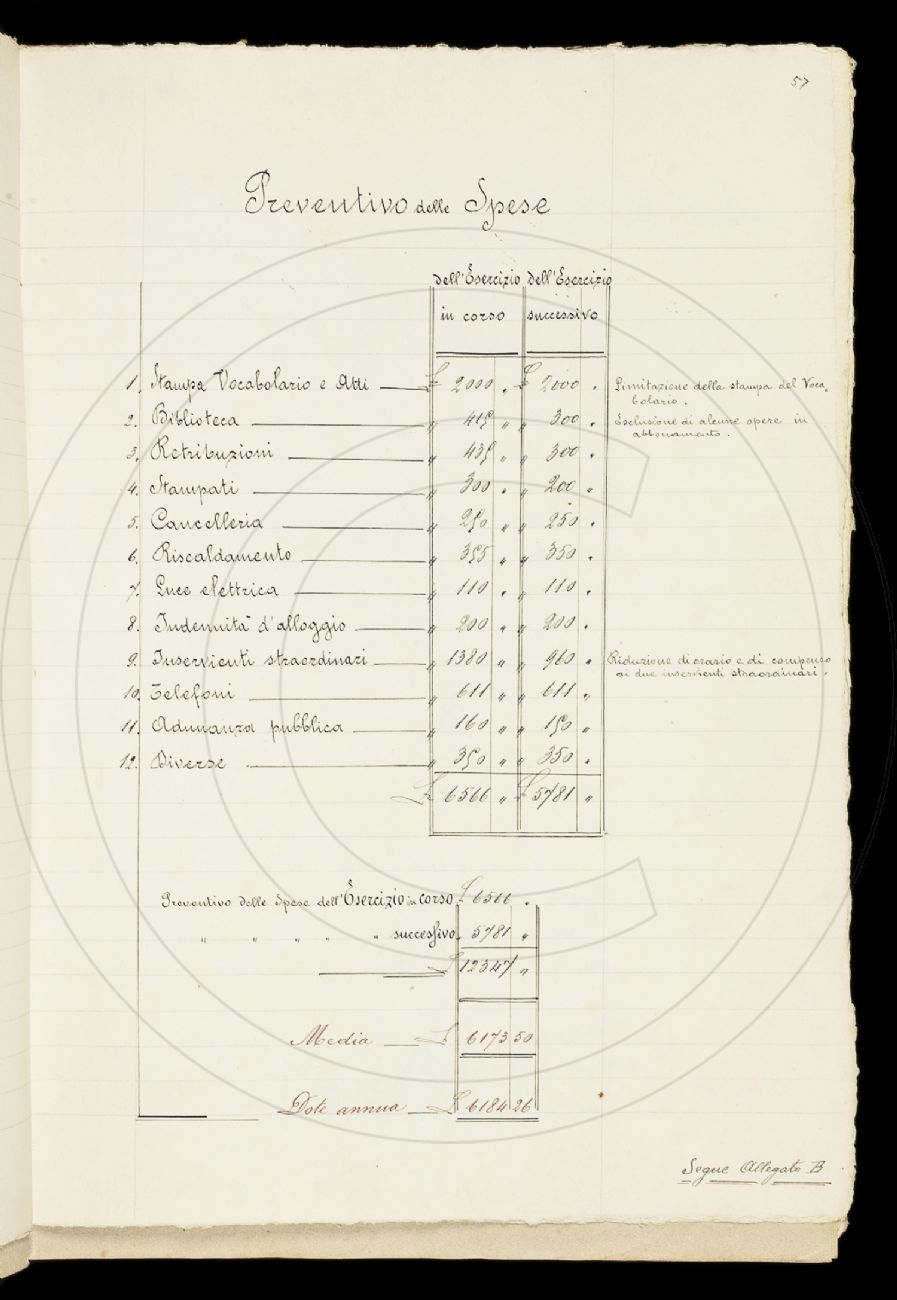 57
Preventivo delle Spese
dell'Esercizio dell'Esercizio
in corso successivo
1. Stampa Vocabolario e Atti £ 2000 „ £ 2000 „ Limitazione della stampa del Voca=
bolario.
2. Biblioteca „ 415 „ „ 300 „ Esclusione di alcune opere in
abbonamento.
3. Retribuzioni „ 435 „ „ 300 „
4. Stampati „ 300 „ „ 200 „
5. Cancelleria „ 250 „ „ 250 „
6. Riscaldamento „ 355 „ „ 350 „
7. Luce elettrica „ 110 „ „ 110 „
8. Indennità d'alloggio „ 200 „ „ 200 „
9. Inservienti straordinari „ 1380 „ „ 960 „ Riduzione di orario e di compenso
ai due inservienti straordinari.
10. Telefoni „ 611 „ „ 611 „
11. Adunanza pubblica „ 160 „ „ 150 „
12. Diverse „ 350 „ „ 350 „
£ 6566 „ £ 5781 „
Preventivo delle Spese dell'Esercizio in corso £ 6566 „
„ „ „ „ „ successivo „ 5781 „
£ 12347 „
Media £ 6173 50
Dote annua £ 6184 26
Segue Allegato B